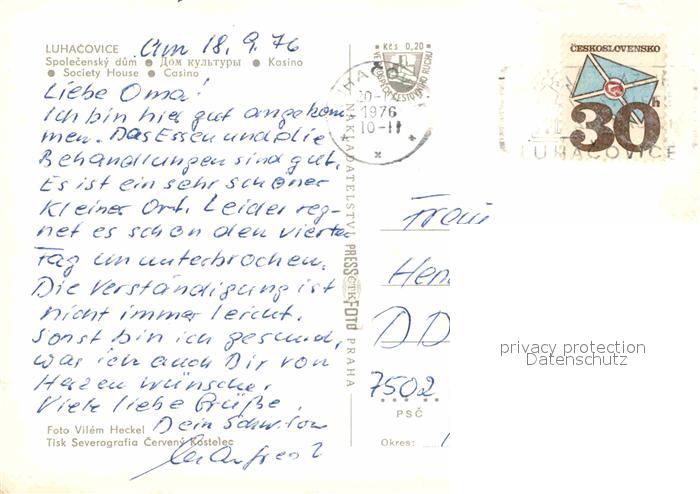 LUHAČOVICE
Am 18.9.76
Společenský dům ● Дом культуры ● Kasino
● Society House ● Casino
Liebe Oma!
Ich bin hier gut angekom-
men. Das Essen und die
Behandlungen sind gut.
Es ist ein sehr schöner
kleiner Ort. Leider reg-
net es schon den vierten
Tag ununterbrochen.
Die Verständigung ist
nicht immer leicht.
Sonst bin ich gesund,
was ich auch Dir von
Herzen wünsche.
Viele liebe Grüße
Dein
Manfred
Foto Vilém Heckel
Tisk Severografia Červený Kostelec
NAKLADATELSTVÍ PRESSFOTO PRAHA
ČTK
Kčs 0,20
1976
10-11
ČESKOSLOVENSKO
30h
LUHAČOVICE
Frau
Hen
DD
7502
PSČ
Okres:
privacy protection
Datenschutz